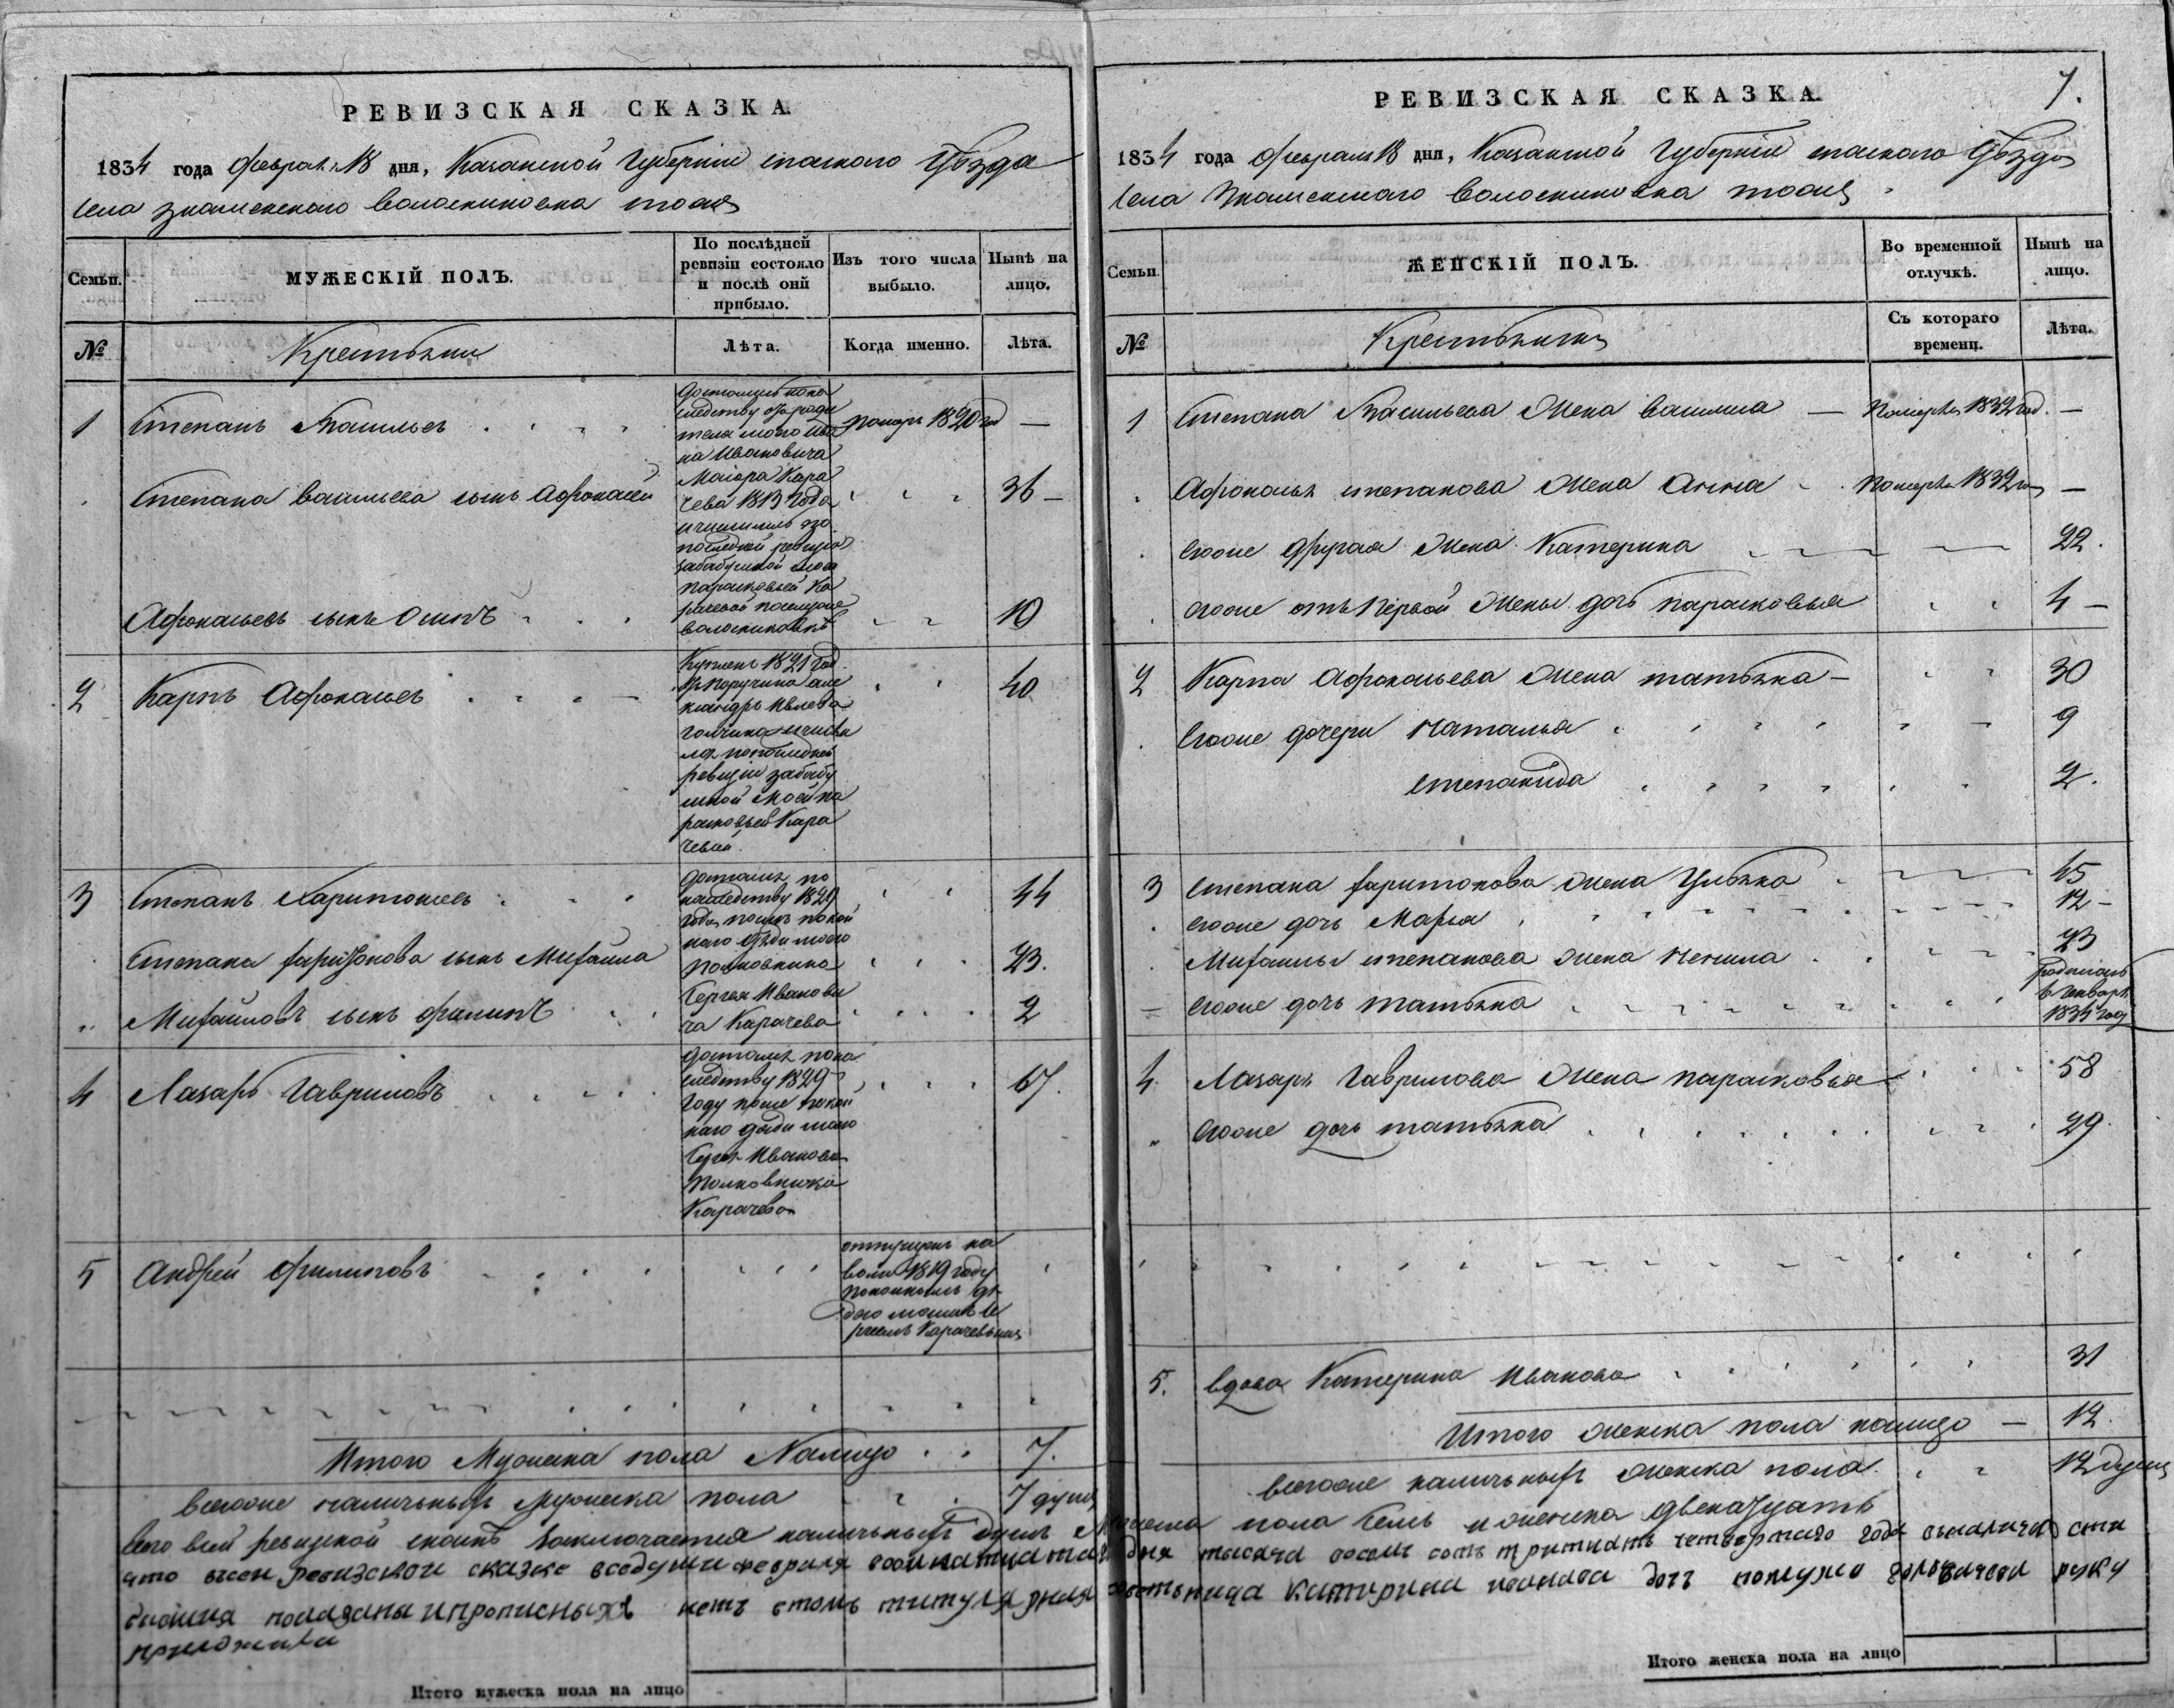 РЕВИЗСКАЯ СКАЗКА.
1834 года февраля 18 дня, Казанской Губернии спаского Уѣзда
села знаменского Волоскиновка тоже
Семьи.
МУЖЕСКІЙ ПОЛЪ.
По послѣдней ревизіи состояло и послѣ оній прибыло.
Изъ того числа выбыло.
Нынѣ на лицо.
№
Крестьяни
Лѣта.
Когда именно.
Лѣта.
1 Степанъ Васильев
Ивановича
Маіора Кара
чева 1813 года
последней ревизіи
забабушкой
парасковьей Ка
рачевой
помер 1820 год —
Степана васильева сынъ Афонасей 36 —
Афонасьевъ сынъ Осипъ 10
2 Карпъ Афонасьев 40
Куплен 1821 год
ревизіи забабу
шкой моей па
расковьей Кара
чевой.
3 Степанъ Харитонов 44
достался по
наследству 1829
года после покой
наго дяди моего
Полковника
Сергея Иванови
ча Карачева
Степана харитонова сынъ Михаила 23.
Михайловъ сынъ филипъ 2
4 Лазарь Гавриловъ 67.
достался пона
следству 1829
году после покой
наго дяди моего
Сергея Иванова
Полковника
Карачева
5 Андрей филиповъ
отпущен на
волю 1819 году
покойным дя
дею моим Се
ргеем Карачевым
Итого Мужеска пола Налицо 7.
всегоже наличных Мужеска пола 7 душ
РЕВИЗСКАЯ СКАЗКА.
7.
1834 года февраля 18 дня, Казанской Губерніи спаского Уѣзда
села Знаменского Волоскиновка тоже
Семьи.
ЖЕНСКІЙ ПОЛЪ.
Во временной отлучкѣ.
Нынѣ на лицо.
№
Крестьянки
Съ котораго времени.
Лѣта.
1 Степана Васильева Жена Василиса — Померла 1832 год. —
Афонасья степанова Жена Анна Померла 1832 —
Егоже другая Жена Катерина 22.
Егоже отъ Первой Жены дочь парасковья 4 —
2 Карпа Афонасьева Жена татьяна — 30
Егоже дочери Наталья 9
степанида 2.
3 Степана харитонова жена Ульяна 45
Егоже дочь Марья 12 —
Михаилы степанова жена ненила 23
Егоже дочь татьяна родилась в Генваре 1834 год
4 Лазаря Гаврилова Жена парасковья 58
Егоже дочь татьяна 29.
5. Вдова Катерина Иванова 31
Итого женска пола налицо — 12.
всегоже наличных Женска пола 12 душ
Всего всей ревизкой сказке Заключается наличных душ Мужеска пола Семь и женска двенадцать
что в сей ревизской сказке вседуши февраля восимнатцатаго дня тысяча восемь сотъ тритцать четвертаго года
показаны и прописныхъ нетъ в томъ титулярная советьница Катирина иванова дочь руку
приложила
Итого мужеска пола на лицо
Итого женска пола на лицо